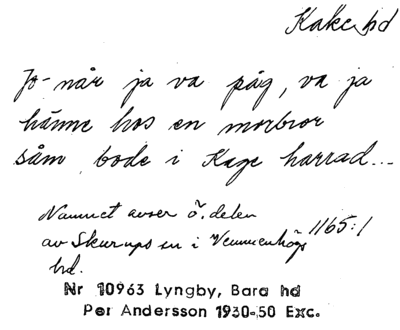 Kake hd
Jo - når ja va påg, va ja
hänne hos en morbror
såm bode i Kage harrad...
Namnet avser ö. delen
av Skurups sn i Vemmenhögs 1165:1
hd.
Nr 10963 Lyngby, Bara hd
Per Andersson 1930-50 Exc.